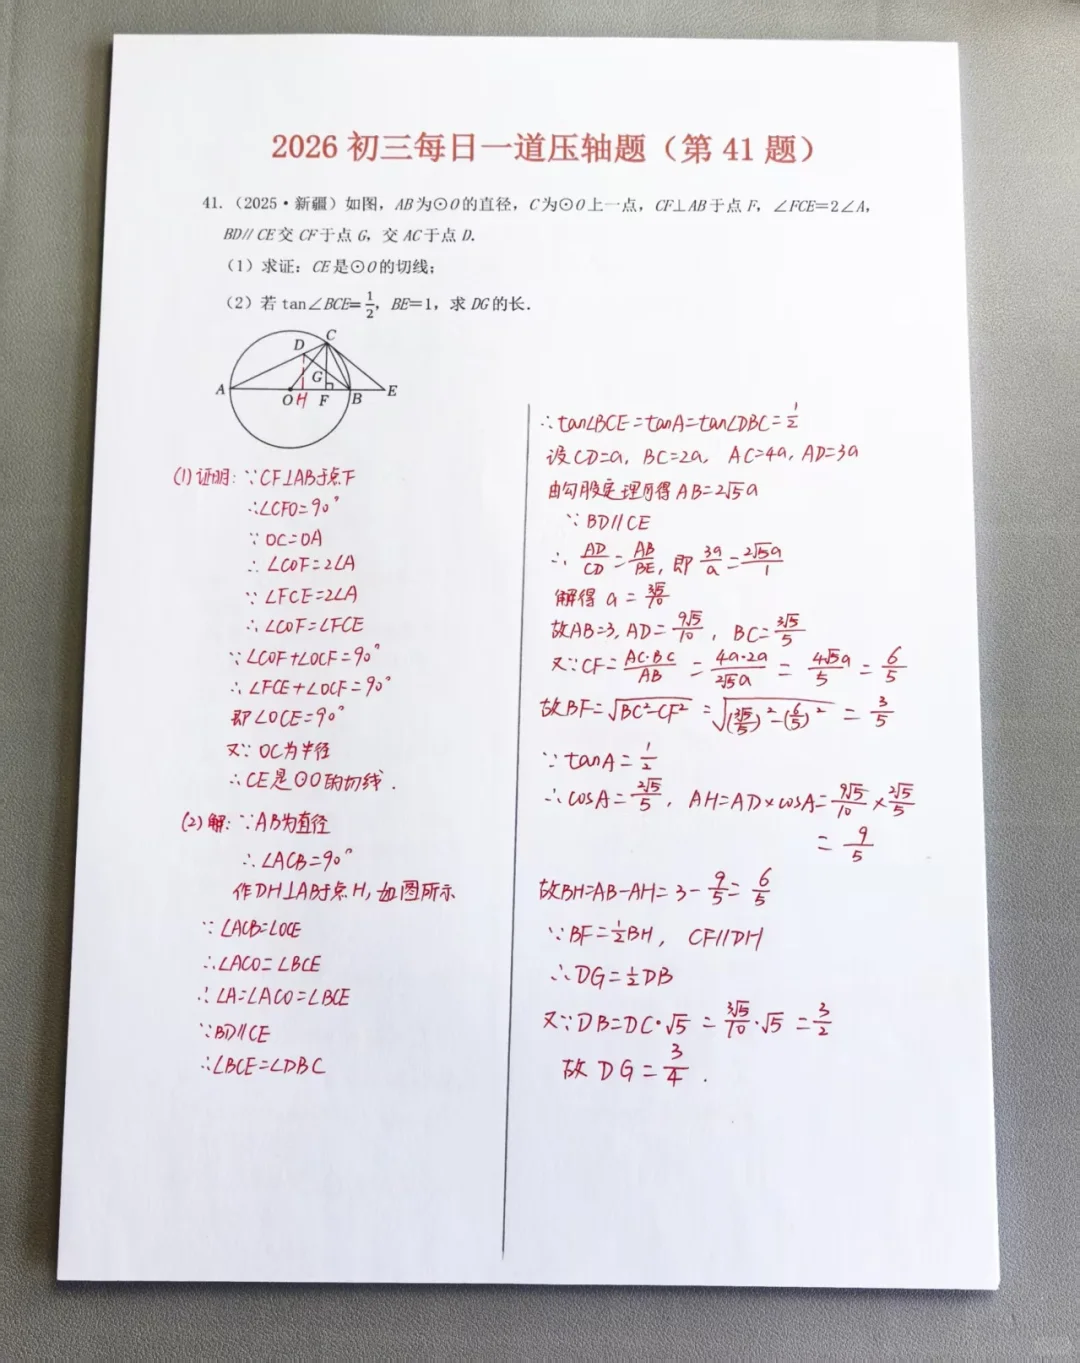 2026 初三每日一道压轴题（第 41 题）
41.（2025·新疆）如图，AB为⊙O的直径，C为⊙O上一点，CF⊥AB于点F，∠FCE=2∠A，
BD∥CE交CF于点G，交AC于点D.
（1）求证：CE是⊙O的切线；
（2）若tan∠BCE=1/2，BE=1，求DG的长.
C
D
G
A
O H F B E
(1)证明：∵CF⊥AB于点F
∴∠CFO=90°
∵OC=OA
∴∠COF=2∠A
∵∠FCE=2∠A
∴∠COF=∠FCE
∵∠COF+∠OCF=90°
∴∠FCE+∠OCF=90°
即∠OCE=90°
又∵OC为半径
∴CE是⊙O的切线.
(2)解：∵AB为直径
∴∠ACB=90°
作DH⊥AB于点H，如图所示
∵∠ACB=∠OCE
∴∠ACO=∠BCE
∴∠A=∠ACO=∠BCE
∵BD∥CE
∴∠BCE=∠DBC
∴tan∠BCE=tanA=tan∠DBC=1/2
设CD=a, BC=2a, AC=4a, AD=3a
由勾股定理可得AB=2√5a
∵BD∥CE
∴AD/CD=AB/BE, 即 3a/a=2√5a/1
解得 a=3√5/10
故AB=3, AD=9√5/10, BC=3√5/5
又∵CF=AC·BC/AB=4a·2a/2√5a=4√5a/5=6/5
故BF=√(BC²-CF²)=√((3√5/5)²-(6/5)²)=3/5
∵tanA=1/2
∴cosA=2√5/5, AH=AD×cosA=9√5/10×2√5/5
=9/5
故BH=AB-AH=3-9/5=6/5
∵BF=1/2BH, CF∥DH
∴DG=1/2DB
又∵DB=DC·√5=3√5/10·√5=3/2
故DG=3/4.